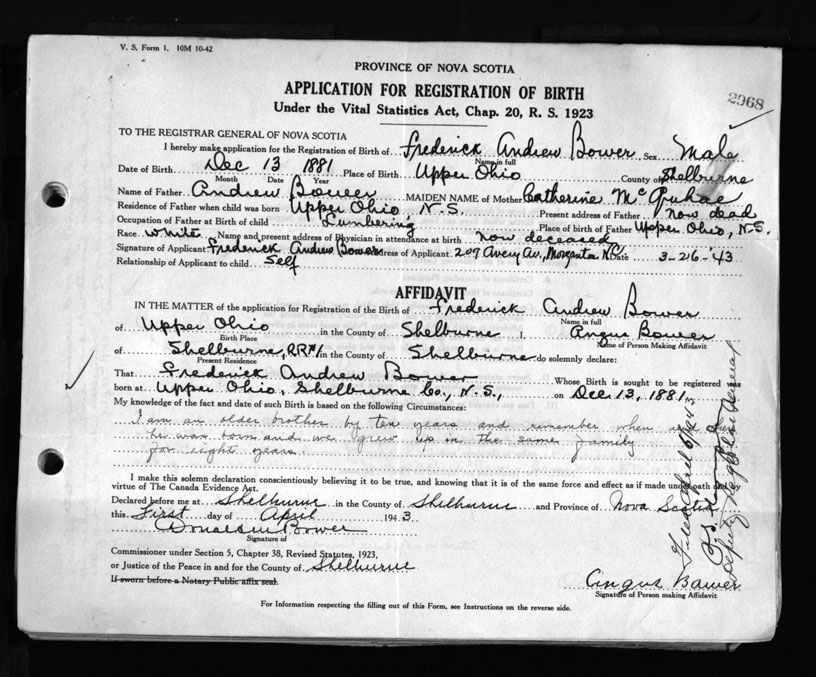 V. S. Form 1. 10M 10-42
PROVINCE OF NOVA SCOTIA
2968
APPLICATION FOR REGISTRATION OF BIRTH
Under the Vital Statistics Act, Chap. 20, R. S. 1923
TO THE REGISTRAR GENERAL OF NOVA SCOTIA
I hereby make application for the Registration of Birth of Frederick Andrew Bower Sex Male
Name in full
Date of Birth Dec 13 1881 Place of Birth Upper Ohio County of Shelburne
Month Date Year
Name of Father Andrew Bower MAIDEN NAME of Mother Catherine
Residence of Father when child was born Upper Ohio N.S. Present address of Father now dead
Occupation of Father at Birth of child Lumbering Place of birth of Father Upper Ohio, N.S.
Race white Name and present address of Physician in attendance at birth now deceased
Signature of Applicant Frederick Andrew Bower Address of Applicant 207 Avery Av., Morganton N.C. Date 3-26-'43
Relationship of Applicant to child Self
AFFIDAVIT
IN THE MATTER of the application for Registration of the Birth of Frederick Andrew Bower
Name in full
of Upper Ohio in the County of Shelburne I, Angus Bower
Birth Place Name of Person Making Affidavit
of Shelburne, RR#1 in the County of Shelburne do solemnly declare:
Present Residence
That Frederick Andrew Bower Whose Birth is sought to be registered was
born at Upper Ohio, Shelburne Co., N.S., on Dec. 13, 1881
My knowledge of the fact and date of such Birth is based on the following Circumstances:
I am an older brother by ten years and remember when
he was born and we grew up in the same family
for eight years.
I make this solemn declaration conscientiously believing it to be true, and knowing that it is of the same force and effect as if made under oath and by
virtue of The Canada Evidence Act.
Declared before me at Shelburne in the County of Shelburne and Province of Nova Scotia
this First day of April 1943
Donaldson Bower
Signature of
Commissioner under Section 5, Chapter 38, Revised Statutes, 1923,
or Justice of the Peace in and for the County of Shelburne
If sworn before a Notary Public affix seal.
Angus Bower
Signature of Person making Affidavit
For Information respecting the filling out of this Form, see Instructions on the reverse side.
Filed April
Deputy Registrar General